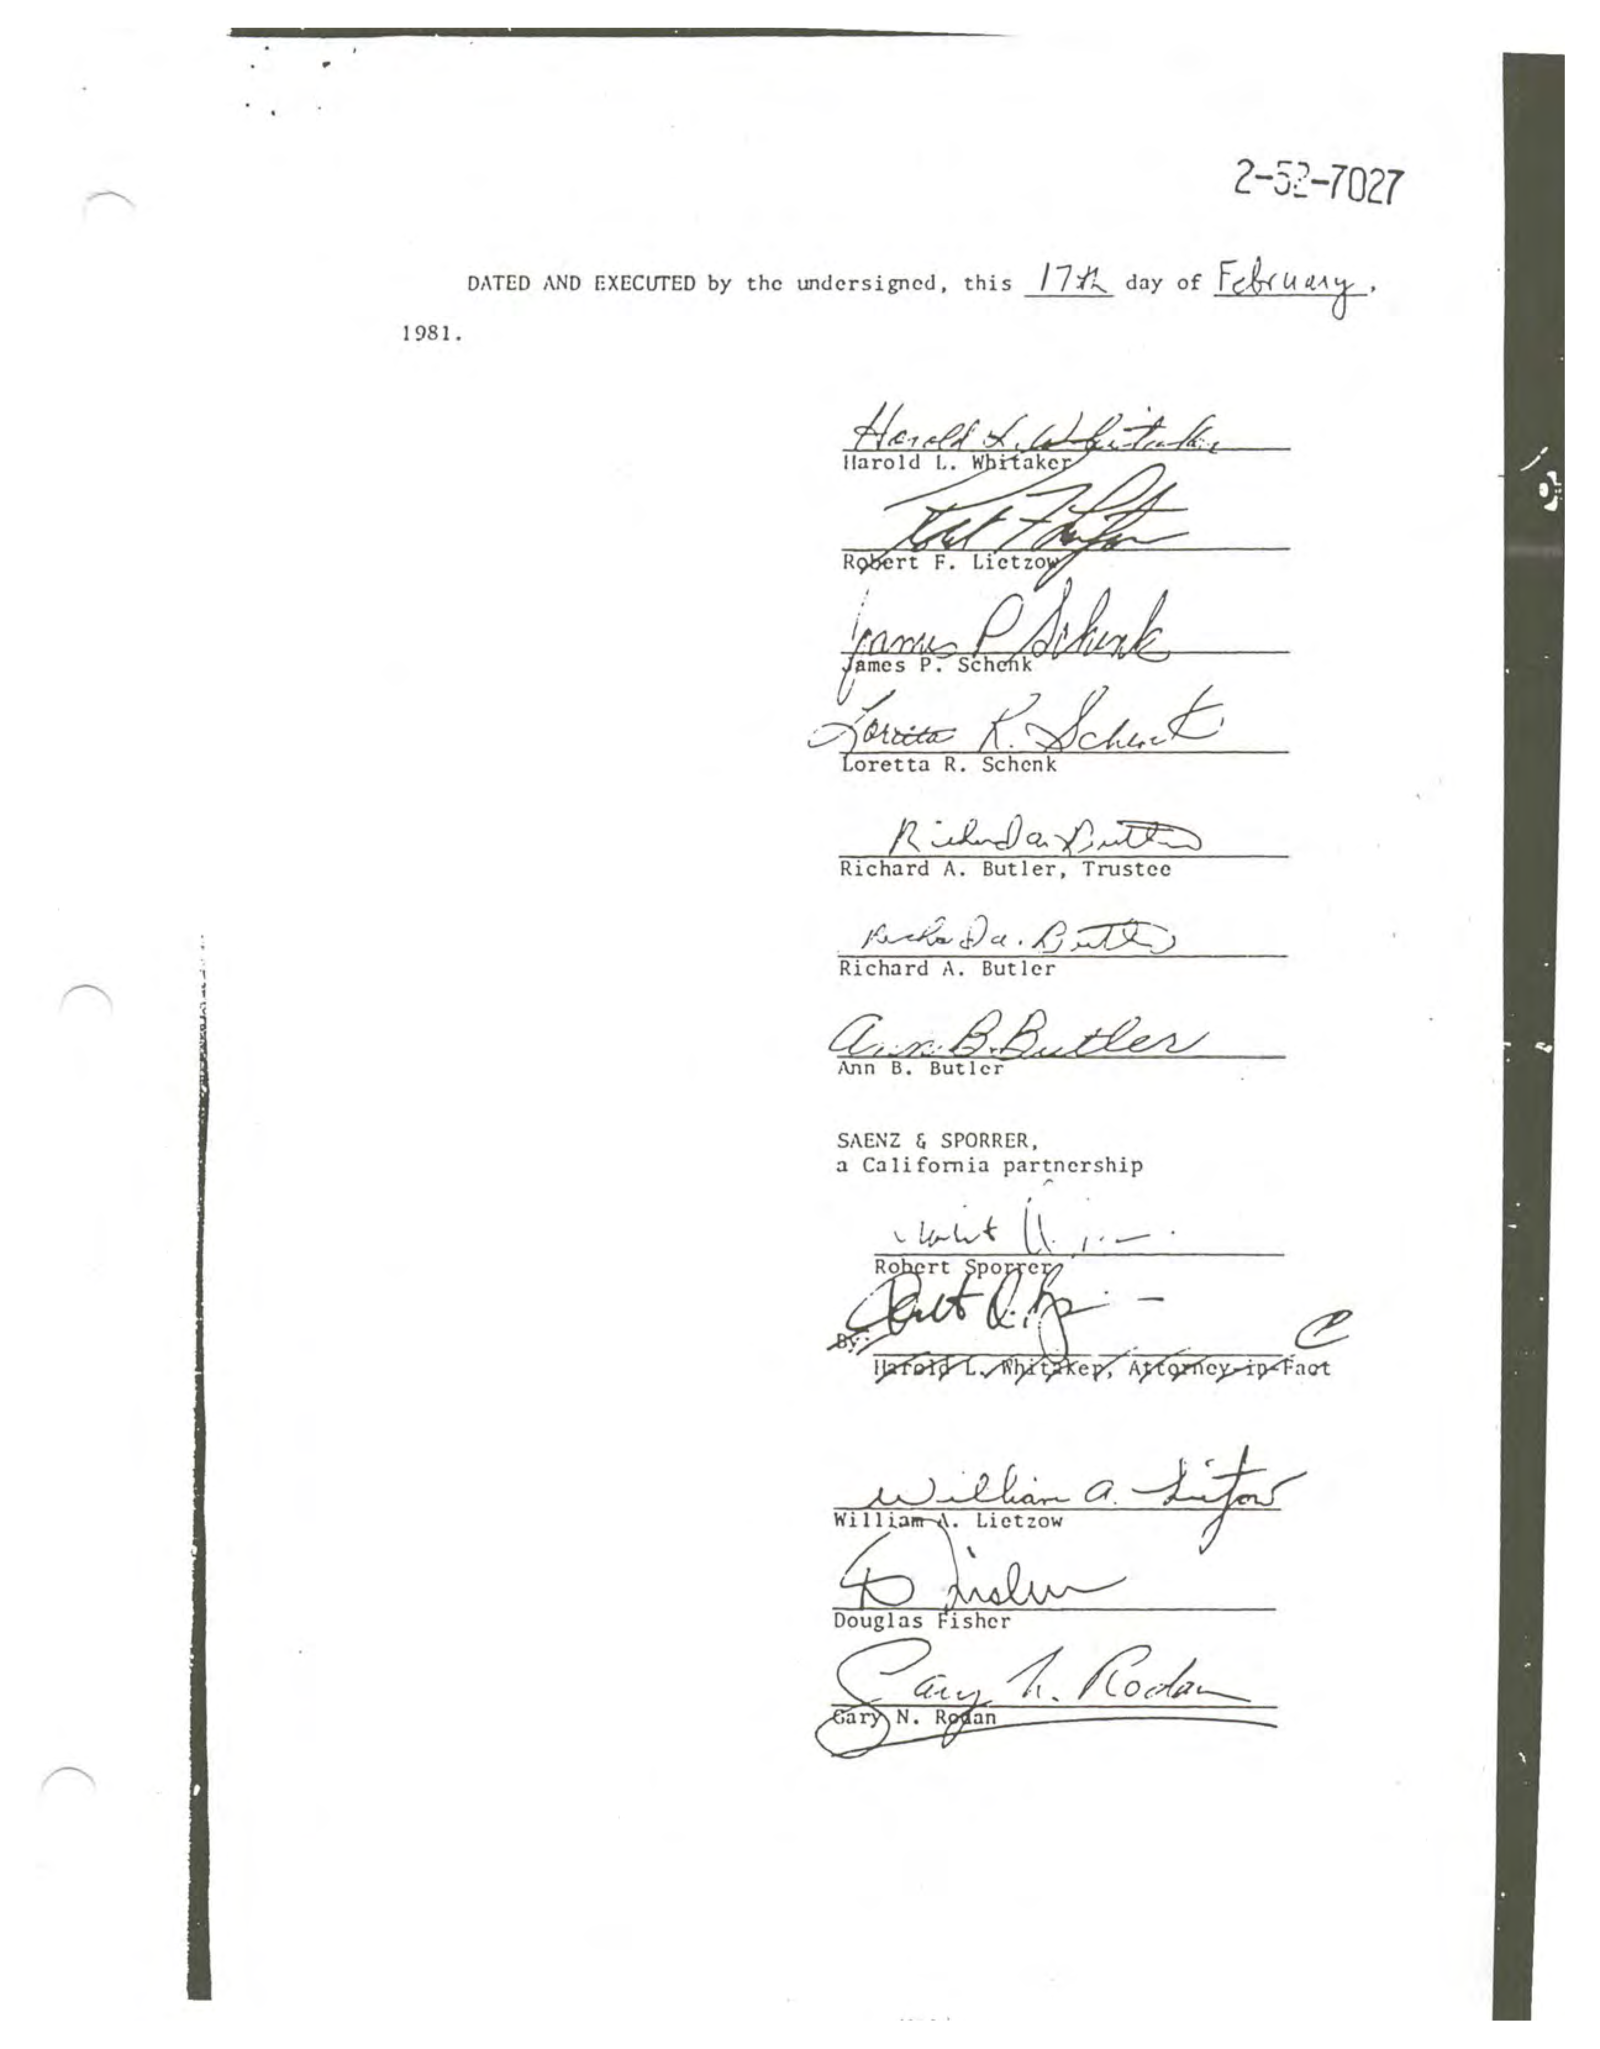 2-52-7027
DATED AND EXECUTED by the undersigned, this 17th day of February,
1981.
Harold L. Whitaker
Harold L. Whitaker
Robert F. Lietzow
James P Schenk
James P. Schenk
Loretta R. Schenk
Loretta R. Schenk
Richard A. Butler
Richard A. Butler, Trustee
Richard A. Butler
Richard A. Butler
Ann B. Butler
Ann B. Butler
SAENZ & SPORRER,
a California partnership
Robert Sporrer
By:
Harold L. Whitaker, Attorney-in-Fact
William A. Lietzow
William A. Lietzow
D Fisher
Douglas Fisher
Gary N. Rodan
Gary N. Rodan